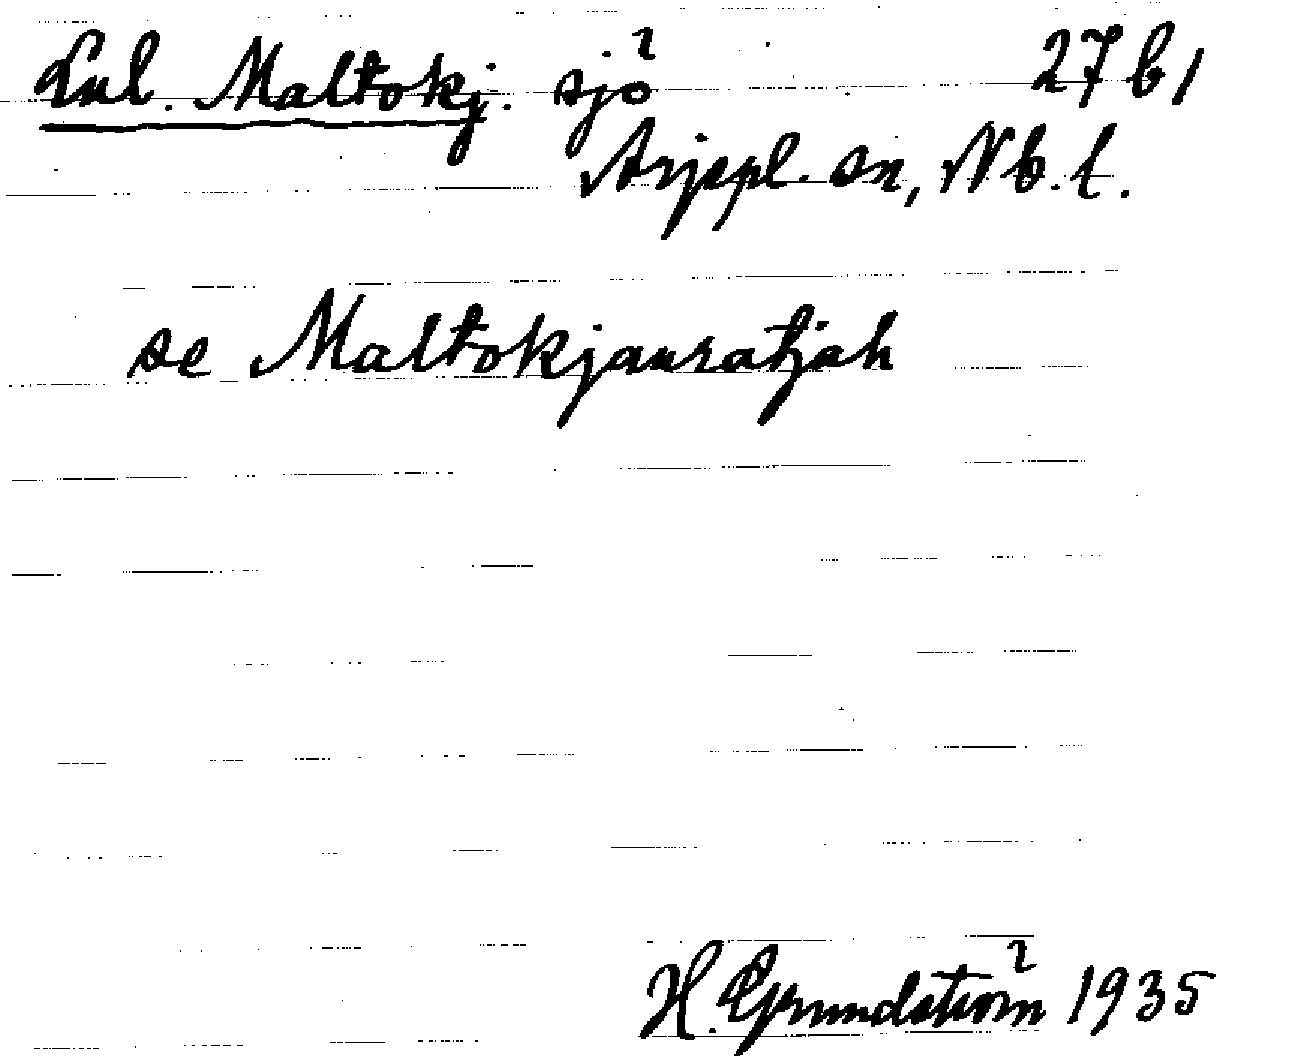 Lul. Maltokj. sjö 27 b 1
Arjepl. sn, Nb. l.
se Maltokjauratjah
H. Grundström 1935